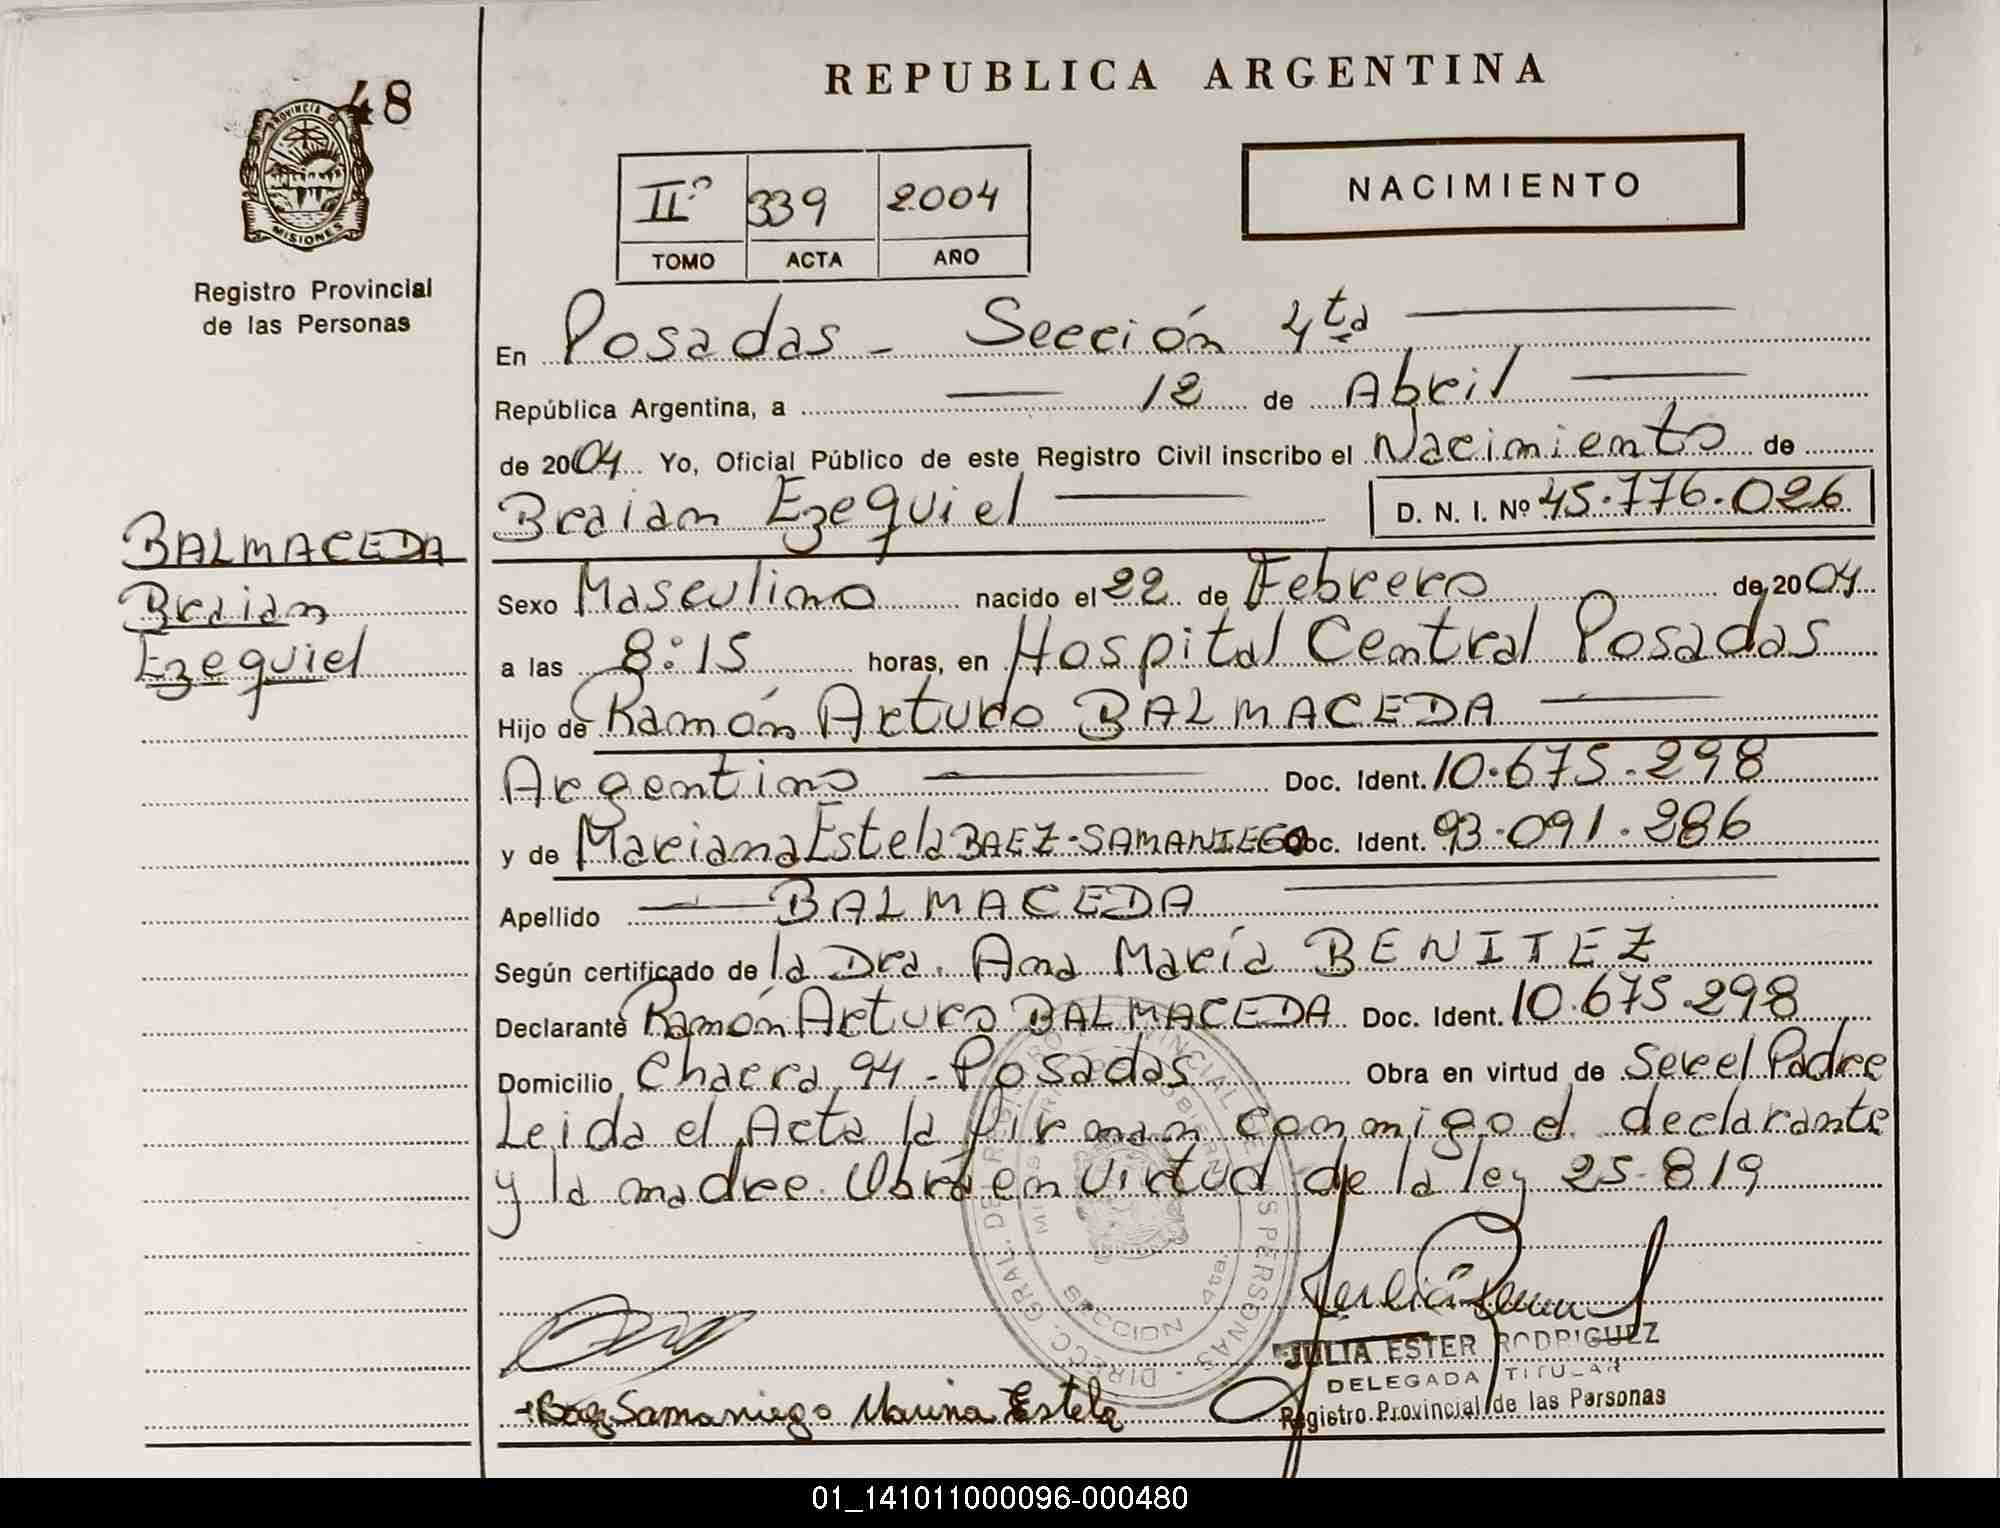 48
PROVINCIA DE
MISIONES
Registro Provincial
de las Personas
BALMACEDA
Braian
Ezequiel
REPUBLICA ARGENTINA
IIº 339 2004
TOMO ACTA AÑO
NACIMIENTO
En Posadas - Sección 4ta
República Argentina, a 12 de Abril
de 2004 Yo, Oficial Público de este Registro Civil inscribo el Nacimiento de
Braian Ezequiel D. N. I. Nº 45.776.026
Sexo Masculino nacido el 22 de Febrero de 2004
a las 8:15 horas, en Hospital Central Posadas
Hijo de Ramón Arturo BALMACEDA
Argentino Doc. Ident. 10.675.298
y de Mariana Estela BAEZ-SAMANIEGO Doc. Ident. 93.091.286
Apellido BALMACEDA
Según certificado de la Dra. Ana María BENITEZ
Declarante Ramón Arturo BALMACEDA Doc. Ident. 10.675.298
Domicilio Chacra 94 - Posadas Obra en virtud de Ser el Padre
Leida el Acta la firman conmigo el declarante
y la madre. Obra en virtud de la ley 25.819
DIRECC. GRAL. DE REGISTRO PROVINCIAL DE LAS PERSONAS
SECCION 4ta.
JULIA ESTER RODRIGUEZ
DELEGADA TITULAR
Registro Provincial de las Personas
Baez Samaniego Marina Estela
01_141011000096-000480